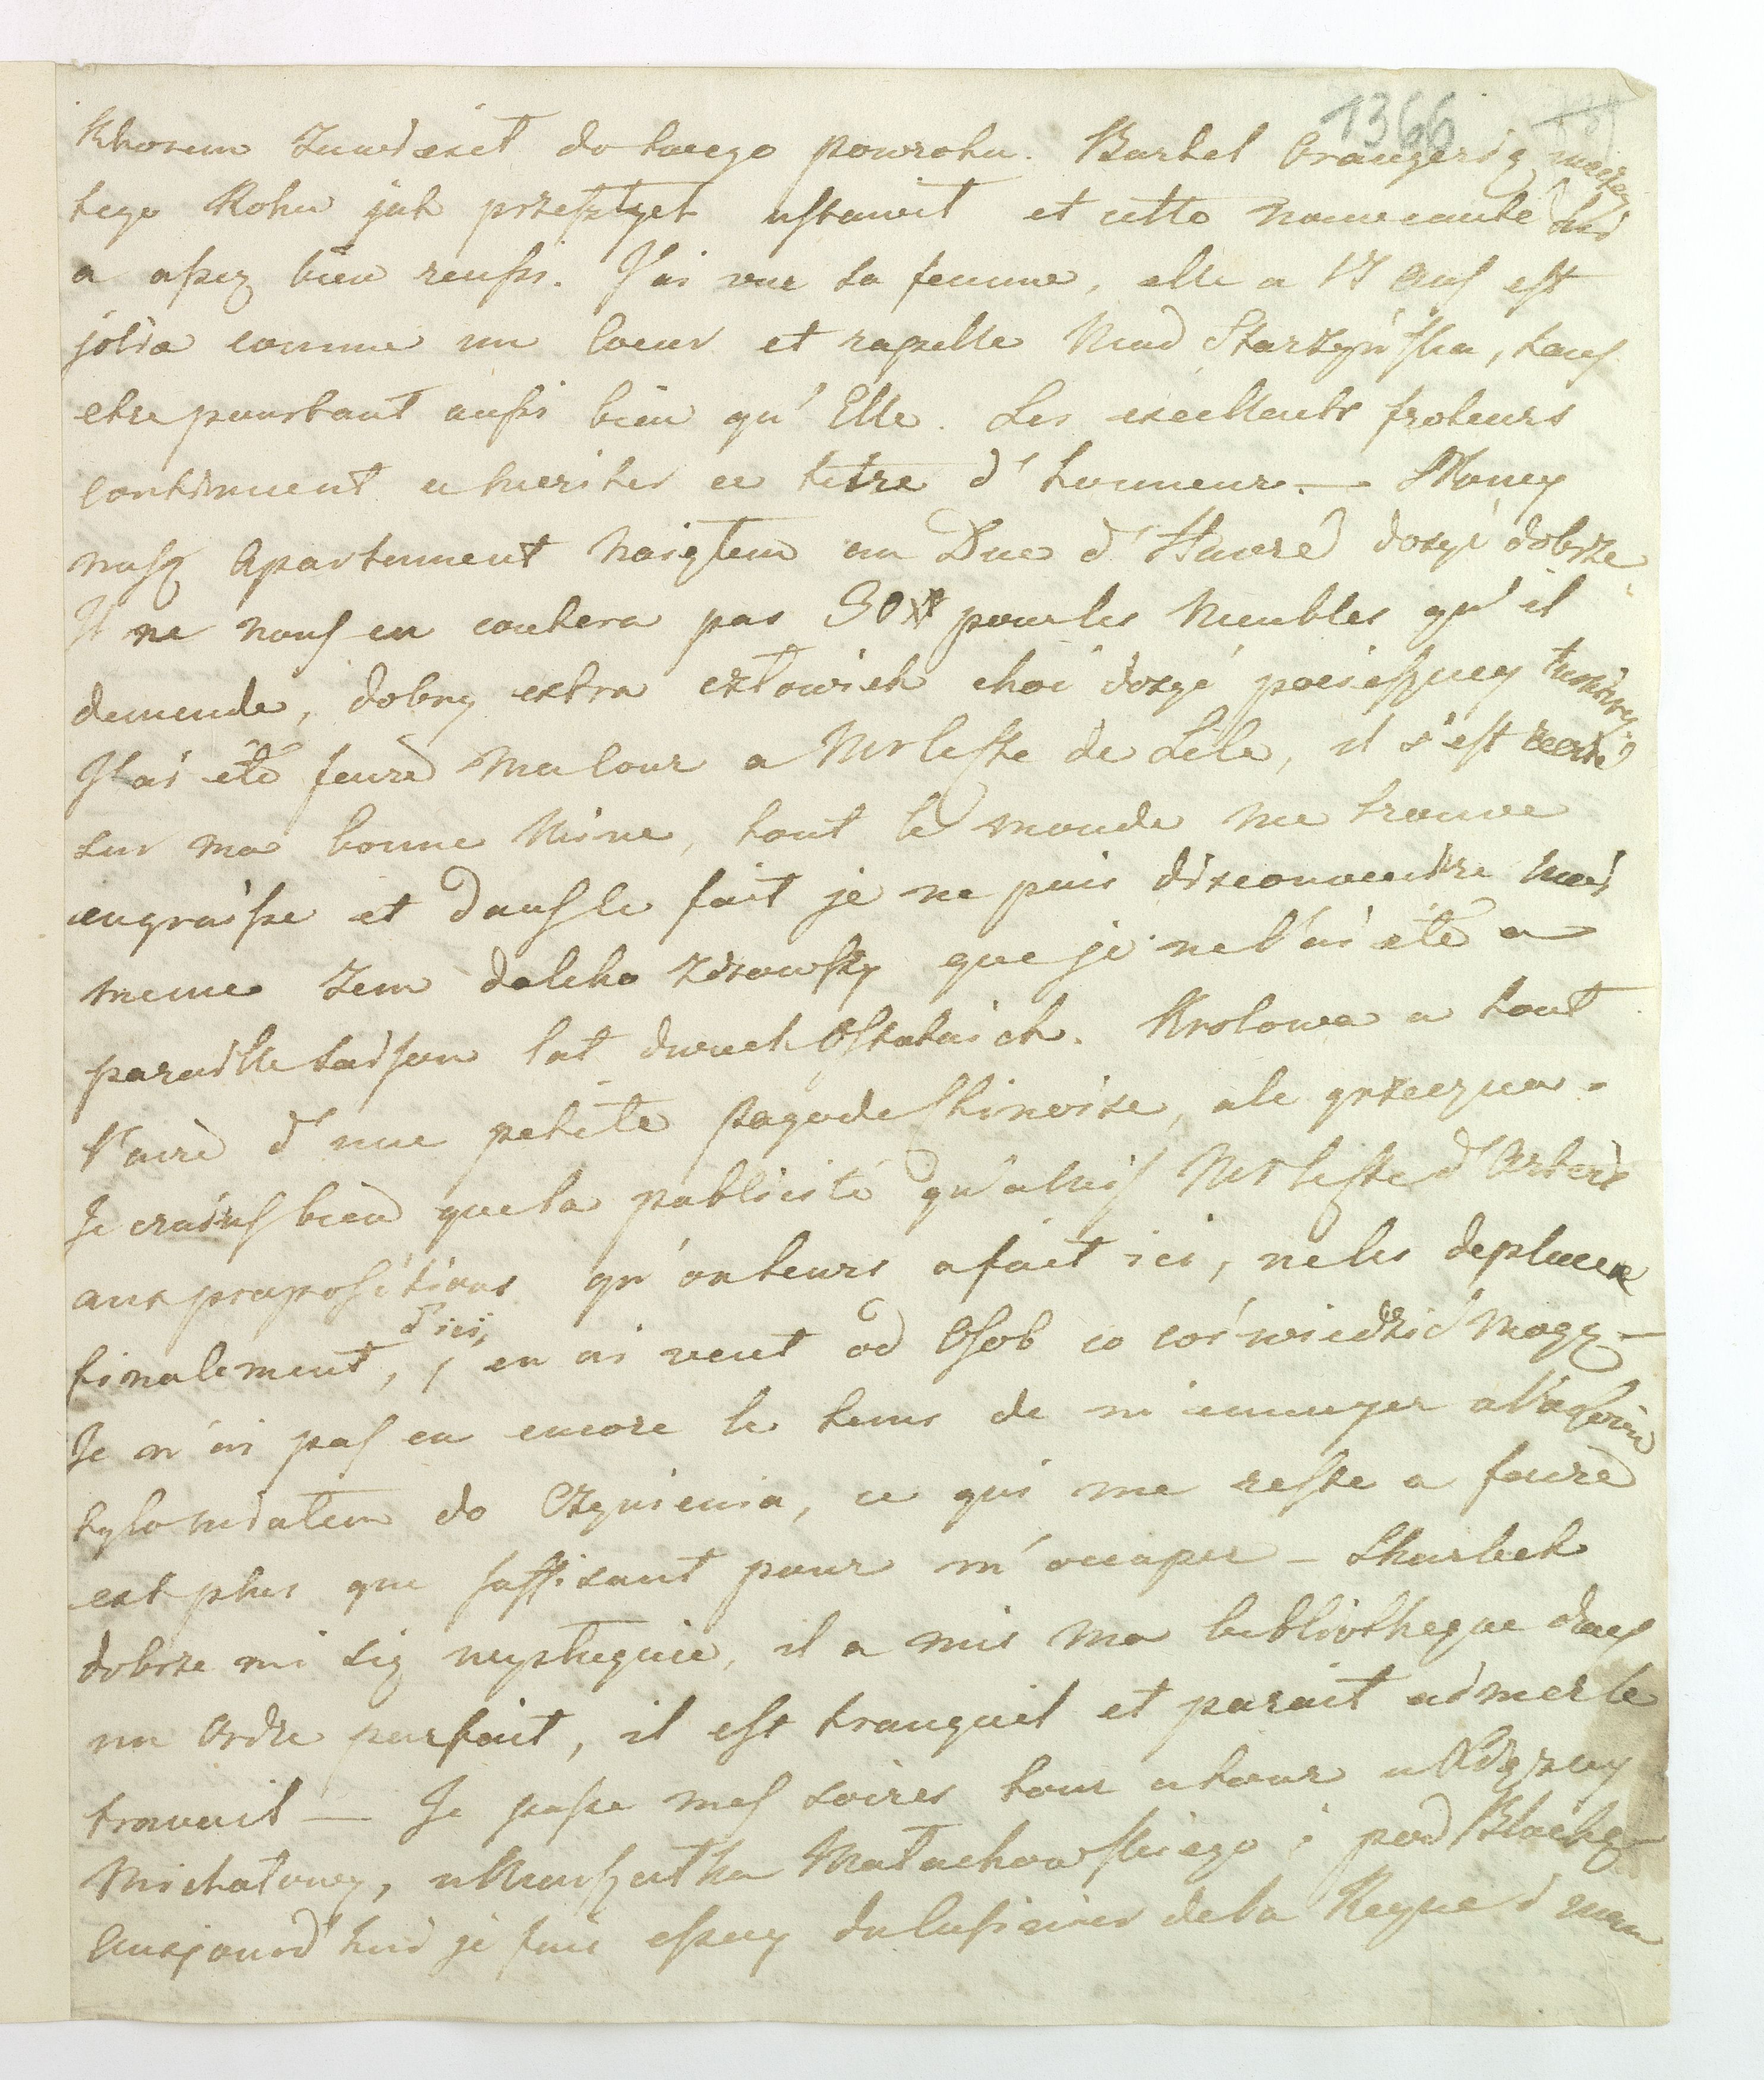 1366
Ktorem Zawdział do twego powrotu. Bartel Orangerię inaczey
tego Roku jak przeszłych ustawił et cette nouveauté lui
a assez bien reussi. J'ai vue sa femme, elle a 17 ans est
jolie comme un Coeur et rapelle Mad Starzyńska, sans
etre pourtant aussi bien qu'Elle. Les excellents froteurs
continuent a meriter ce titre d'honneur. — Stancy
nasz Apartement naięłem au Duc d'Havré dosyć dobrze
Il ne nous en coutera pas 30# pour les Meubles qu'il
demende, dobry extra człowiek choć dosyć pocieszney
J'ai été faire Ma Cour a Mr le Cte de Lile, il s'est recrié
sur ma bonne Mine, tout le monde me trouve
engraissé et dans le fait je ne puis disconvenire moi
meme Zem daleko zdrowszy que je ne l'ai été a
pareille saison lat dwuch Ostatnich. Krolowa a tout
l'aire d'une petite Pagode Chinoise, ale grzeczna.
Je crains bien que la publicité qu'a mis Mr le Cte d'Artois
aux propositions qu'on leurs a fait ici, ne les deplace
d'ici,
finalement, j'en ai vent od Osob co coś wiedzić mogą —
Je n'ai pas eu encore le tems de m'ennuyer
tylo miałem do Czynienia, ce qui me reste a faire
est plus que suffisant pour m'occuper — Skarbek
dobrze mi się wypłaguie, il a mis ma bibliotheque dans
un Ordre parfait, il est tranquil et parait aimer le
travail — Je passe mes soires tour a tour u Xiężney
Michałowy, u Marszałka Małachowskiego i pod Blachą
Aurjourd'hui je fais essay du Cuisinier de la Reyne i mam